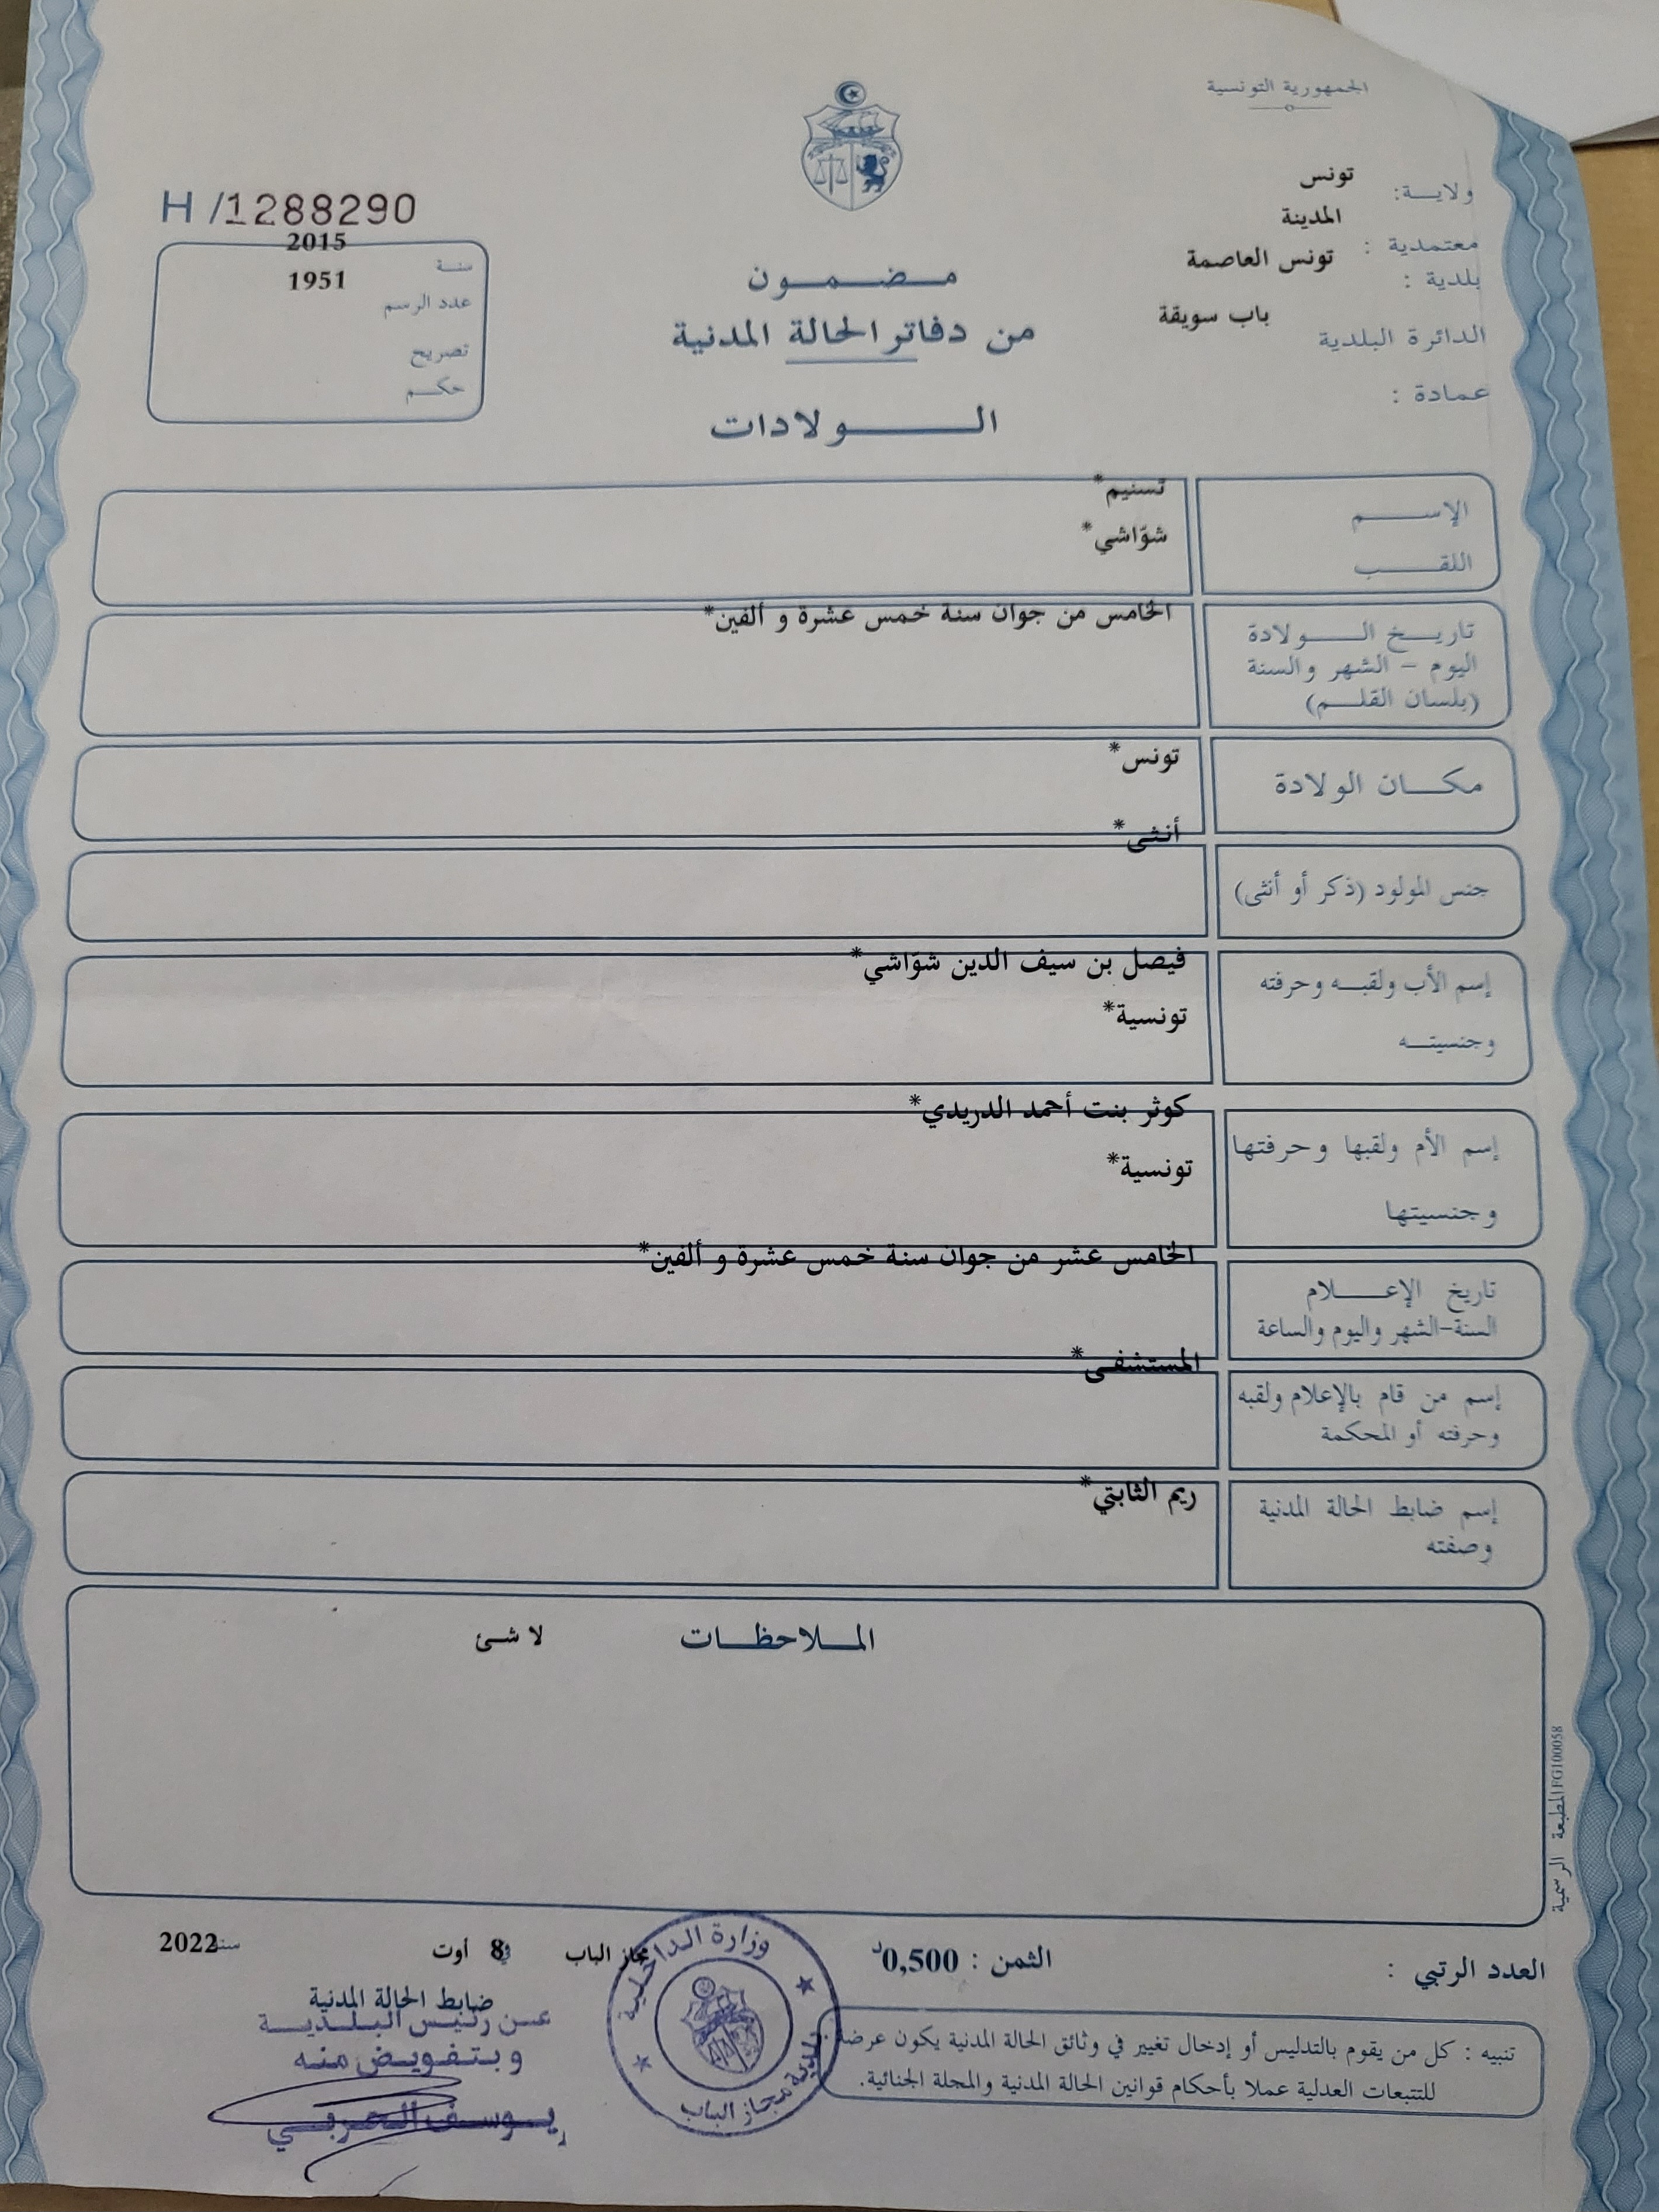 الجمهورية التونسية
ولاية: تونس
معتمدية : المدينة
بلدية : تونس العاصمة
الدائرة البلدية باب سويقة
عمادة :
H /1288290
سنة 2015
عدد الرسم 1951
تصريح
حكم
مضمون
من دفاتر الحالة المدنية
الولادات
الإسم تسنيم*
اللقب شوّاشي*
تاريخ الولادة الخامس من جوان سنة خمس عشرة و ألفين*
اليوم - الشهر والسنة
(بلسان القلم)
مكان الولادة تونس*
جنس المولود (ذكر أو أنثى) أنثى*
إسم الأب ولقبه وحرفته فيصل بن سيف الدين شوّاشي*
وجنسيته تونسية*
إسم الأم ولقبها وحرفتها كوثر بنت أحمد الدريدي*
وجنسيتها تونسية*
تاريخ الإعلام الخامس عشر من جوان سنة خمس عشرة و ألفين*
السنة-الشهر واليوم والساعة
إسم من قام بالإعلام ولقبه المستشفى*
وحرفته أو المحكمة
إسم ضابط الحالة المدنية ريم الثابتي*
وصفته
الملاحظات لا شئ
المطبعة الرسمية FG100058
العدد الرتبي :
الثمن : 0,500د
مجاز الباب في 8 أوت سنة 2022
ضابط الحالة المدنية
عن رئيس البلدية
وبتفويض منه
يوسف العربي
وزارة الداخلية
بلدية مجاز الباب
تنبيه : كل من يقوم بالتدليس أو إدخال تغيير في وثائق الحالة المدنية يكون عرضة
للتتبعات العدلية عملا بأحكام قوانين الحالة المدنية والمجلة الجنائية.